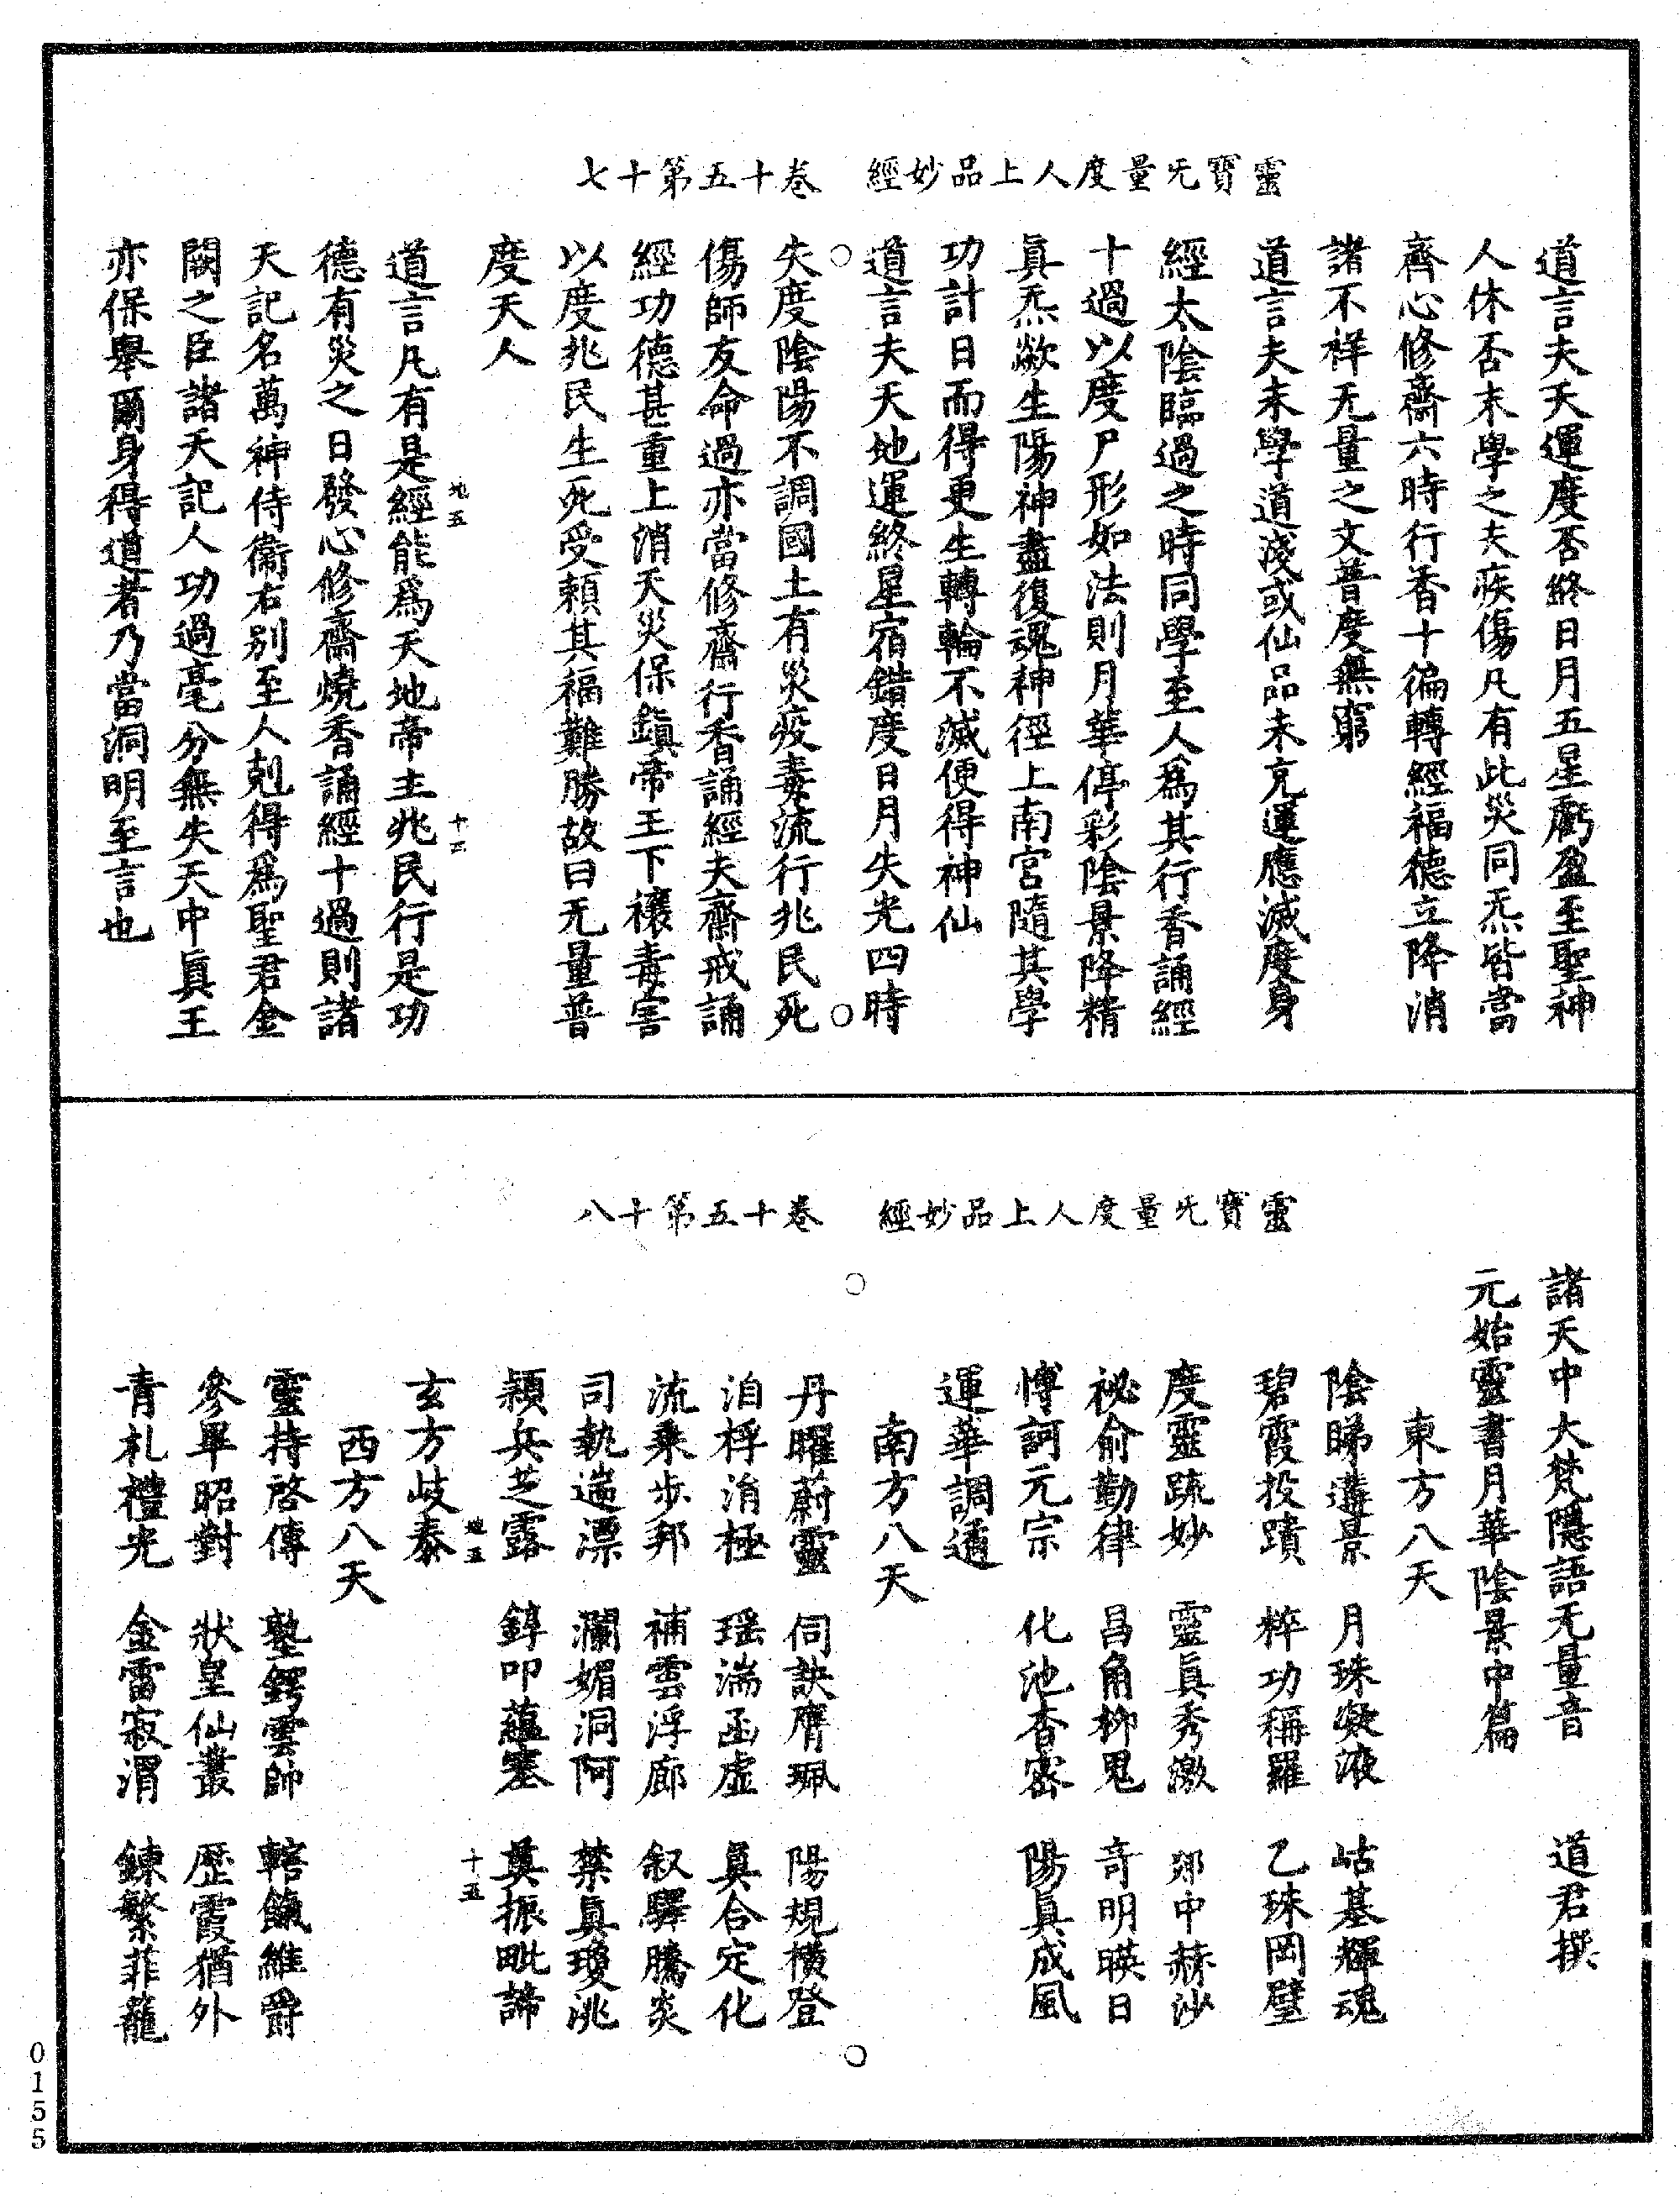 靈寶无量度人上品妙經　卷十五第十七
道言夫天運度否終日月五星虧盈至聖神
人休否末學之夫疾傷凡有此災同炁皆當
齊心修齋六時行香十徧轉經福德立降消
諸不祥无量之文普度無窮
道言夫末學道淺或仙品未充運應滅度身
經太陰臨過之時同學至人爲其行香誦經
十過以度尸形如法則月華停彩陰景降精
眞炁歘生陽神盡復魂神徑上南宮隨其學
功計日而得更生轉輪不滅便得神仙
道言夫天地運終星宿錯度日月失光四時
失度陰陽不調國土有災疫毒流行兆民死
傷師友命過亦當修齋行香誦經夫齋戒誦
經功德甚重上消天災保鎮帝王下禳毒害
以度兆民生死受賴其福難勝故曰无量普
度天人
地五　十四
道言凡有是經能爲天地帝主兆民行是功
德有災之日發心修齋燒香誦經十過則諸
天記名萬神侍衞右別至人剋得爲聖君金
闕之臣諸天記人功過毫分無失天中眞王
亦保舉爾身得道者乃當洞明至言也
靈寶无量度人上品妙經　卷十五第十八
諸天中大梵隱語无量音　道君撰
元始靈書月華陰景中篇
東方八天
陰睇遘景　月珠凝液　岵基輝魂
碧霞投蹟　粹功稱羅　乙珠岡壁
度靈踈妙　靈眞秀激　郍中赫沙
祕俞勤律　昌角栁鬼　奇明暎日
愽訶元宗　化池杳密　陽眞成風
運華調通
南方八天
丹曜蔚靈　伺訣膺珮　陽規橫登
洎桴湑極　瑤湍函虛　眞合定化
流乗步邦　補雲浮廊　叙驛騰炎
司執遄漂　瀾媚洞阿　禁眞瓊洮
穎兵芝露　錞叩蘊塞　奠振毗諦
地五　十五
玄方歧泰
西方八天
靈持啓傳　塾鍔雲帥　轄餼維爵
參畢昭對　狀皇仙叢　歷霞猶外
青札禮光　金雷寂渭　鍊繁菲蘢
0155